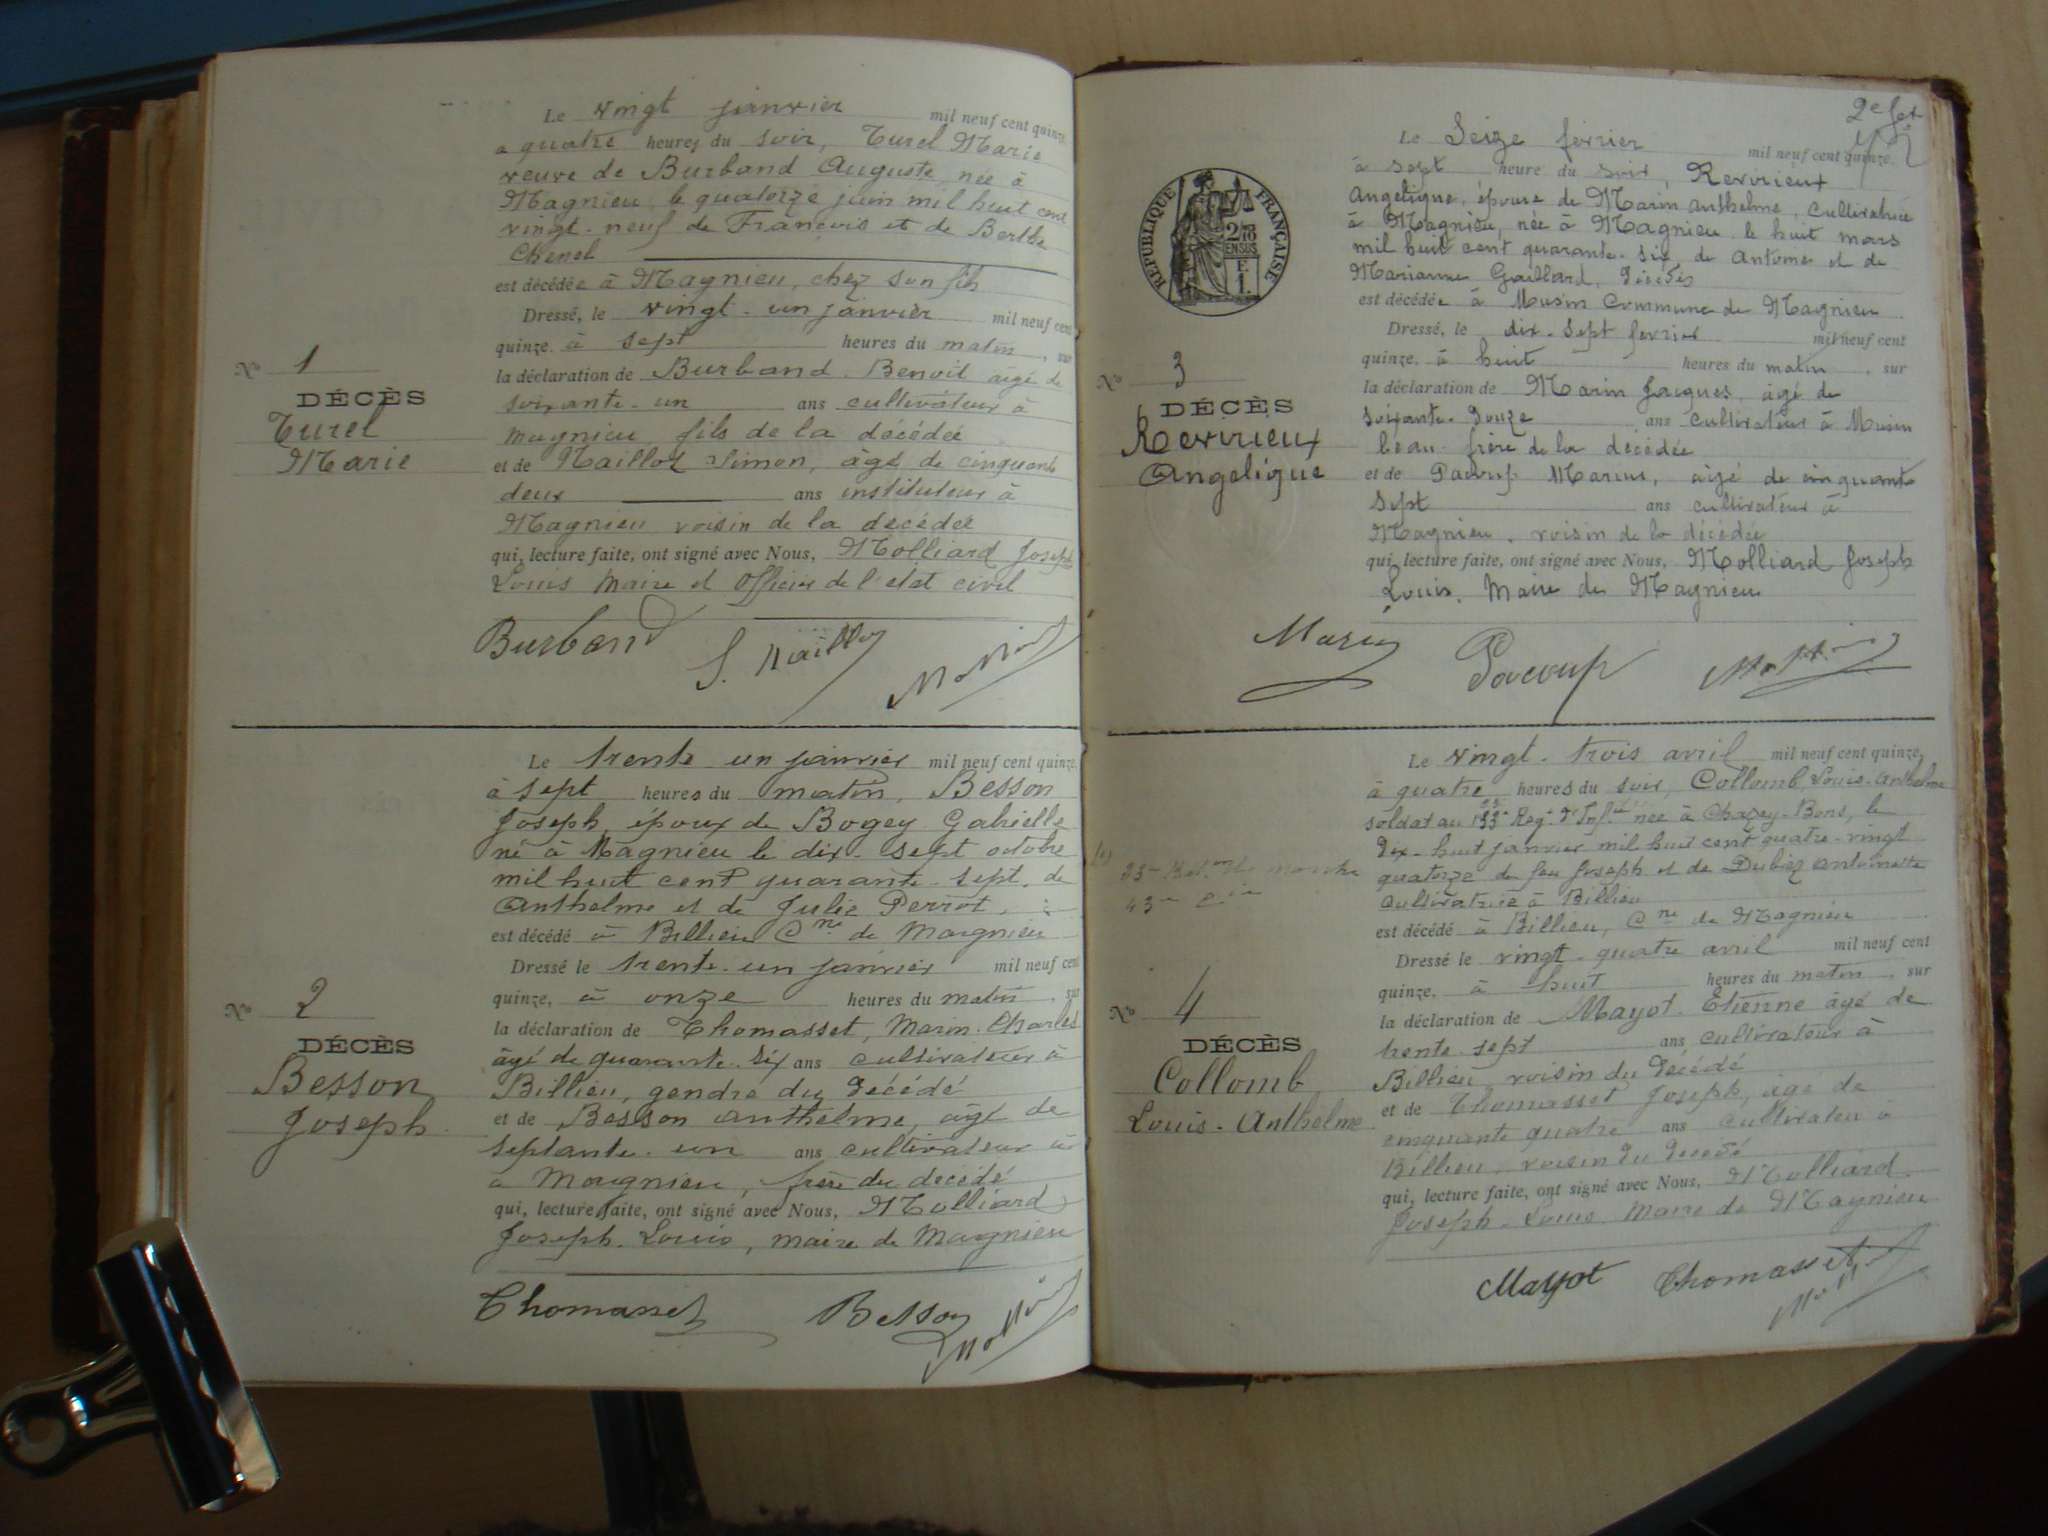 Le vingt janvier mil neuf cent quinze,
a quatre heures du soir, Turel Marie
veuve de Burband Auguste, née à
Magnieu le quatorze juin mil huit cent
vingt-neuf de François et de Berthe
Chenel
est décédée à Magnieu, chez son fils
Dressé, le vingt-un janvier mil neuf cent
quinze. à sept heures du matin, sur
la déclaration de Burband Benoit âgé de
soixante-un ans cultivateur à
Magnieu, fils de la décédée
et de Maillot Simon, âgé de cinquante
deux ans instituteur à
Magnieu voisin de la décédée
qui, lecture faite, ont signé avec Nous, Molliard Joseph
Louis Maire et Officier de l'état civil
No 1
DÉCÈS
Turel
Marie
Burband
Le trente un janvier mil neuf cent quinze,
à sept heures du matin, Besson
Joseph, époux de Bogey Gabrielle
né à Magnieu le dix-sept octobre
mil huit cent quarante-sept, de
Anthelme et de Julie Perrot,
est décédé à Billieu Cne de Magnieu
Dressé le trente-un janvier mil neuf cent
quinze, à onze heures du matin, sur
la déclaration de Thomasset, Marin Charles
âgé de quarante-six ans cultivateur à
Billieu, gendre du décédé
et de Besson Anthelme, âgé de
septante-un ans cultivateur
à Magnieu, frère du décédé
qui, lecture faite, ont signé avec Nous, Molliard
Joseph-Louis, maire de Magnieu
No 2
DÉCÈS
Besson
Joseph
Thomasset Besson
2e fet
RÉPUBLIQUE FRANÇAISE
Le Seize février mil neuf cent quinze,
à sept heure du soir, Revirieux
Angélique, épouse de Marin Anthelme, cultivatrice
à Magnieu, née à Magnieu le huit mars
mil huit cent quarante-six, de Antoine et de
Marianne Gaillard, décédés
est décédée à Musin Commune de Magnieu
Dressé, le dix-sept février mil neuf cent
quinze. à huit heures du matin, sur
la déclaration de Marin Jacques, âgé de
soixante-douze ans cultivateur à Musin
beau-frère de la décédée
et de Pacoup Marius, âgé de cinquante
sept ans cultivateur à
Magnieu, voisin de la décédée
qui, lecture faite, ont signé avec Nous, Molliard Joseph
Louis, Maire de Magnieu
No 3
DÉCÈS
Revirieux
Angélique
Marin Pacoup
Le vingt-trois avril mil neuf cent quinze,
à quatre heures du soir, Collomb Louis-Anthelme
soldat au 133e Reg. d'Inf.ie née à Chazey-Bons, le
dix-huit janvier mil huit cent quatre-vingt
quatorze de feu Joseph et de Dubiez Antoinette
cultivatrice à Billieu
est décédé à Billieu, Cne de Magnieu
Dressé le vingt-quatre avril mil neuf cent
quinze, à huit heures du matin, sur
la déclaration de Mayot Etienne âgé de
trente-sept ans cultivateur à
Billieu voisin du décédé
et de Thomasset Joseph, âgé de
cinquante quatre ans cultivateur à
Billieu, voisin du décédé
qui, lecture faite, ont signé avec Nous, Molliard
Joseph-Louis Maire de Magnieu
No 4
DÉCÈS
Collomb
Louis-Anthelme
Mayot Thomasset